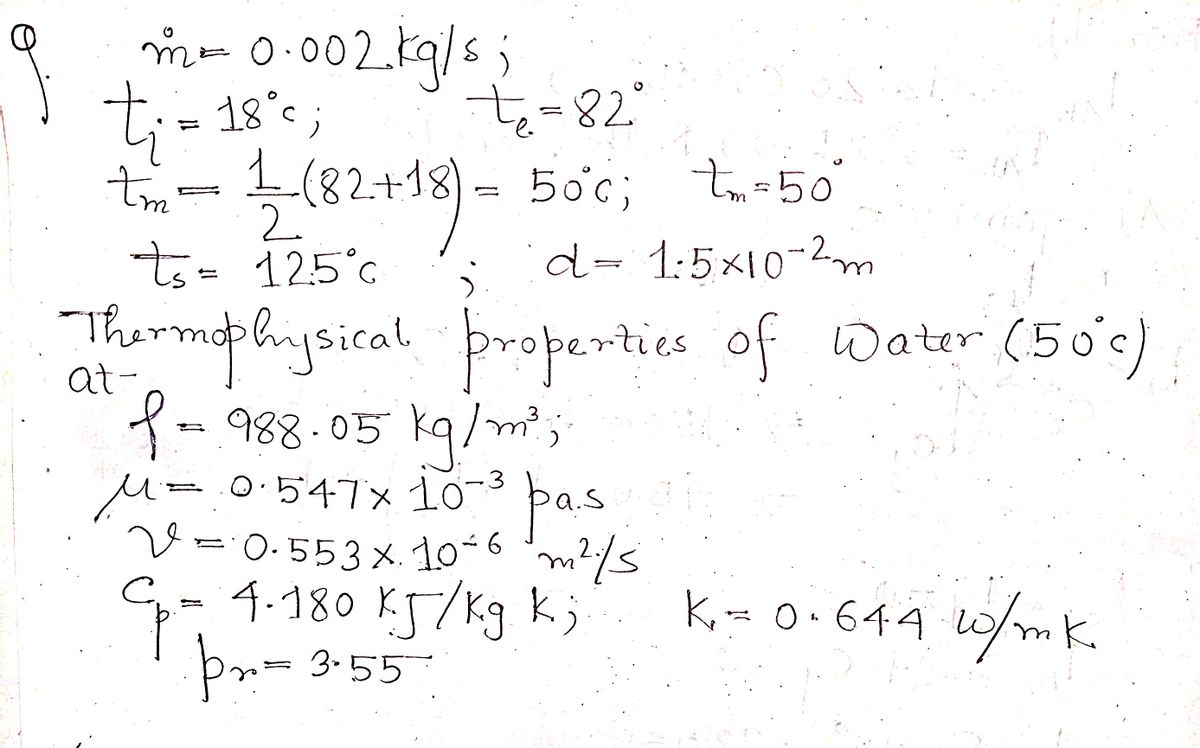 9. ṁ = 0.002 kg/s ;
ti = 18°c ; te = 82°
tm = 1/2 (82+18) = 50°c ; tm = 50°
ts = 125°c ; d = 1.5×10-² m
Thermophysical properties of Water (50°c)
at-
ρ = 988.05 kg/m³ ;
μ = 0.547 × 10-³ pa.s
ν = 0.553 × 10-⁶ m²/s
Cp = 4.180 KJ/kg k ; K = 0.644 w/m K
pr = 3.55